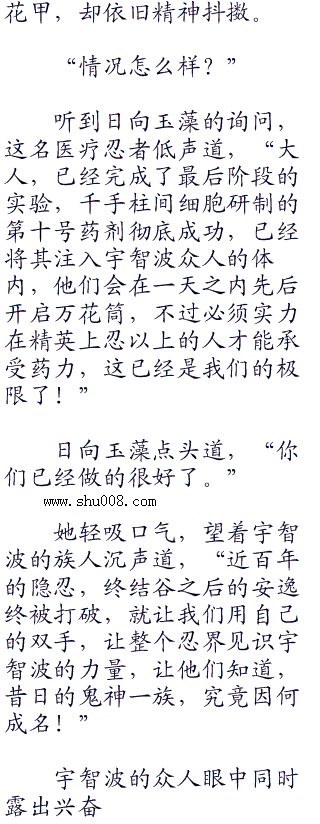 花甲，却依旧精神抖擞。
“情况怎么样？”
听到日向玉藻的询问，
这名医疗忍者低声道，“大
人，已经完成了最后阶段的
实验，千手柱间细胞研制的
第十号药剂彻底成功，已经
将其注入宇智波众人的体
内，他们会在一天之内先后
开启万花筒，不过必须实力
在精英上忍以上的人才能承
受药力，这已经是我们的极
限了！”
日向玉藻点头道，“你
们已经做的很好了。”
www.shu008.com
她轻吸口气，望着宇智
波的族人沉声道，“近百年
的隐忍，终结谷之后的安逸
终被打破，就让我们用自己
的双手，让整个忍界见识宇
智波的力量，让他们知道，
昔日的鬼神一族，究竟因何
成名！”
宇智波的众人眼中同时
露出兴奋